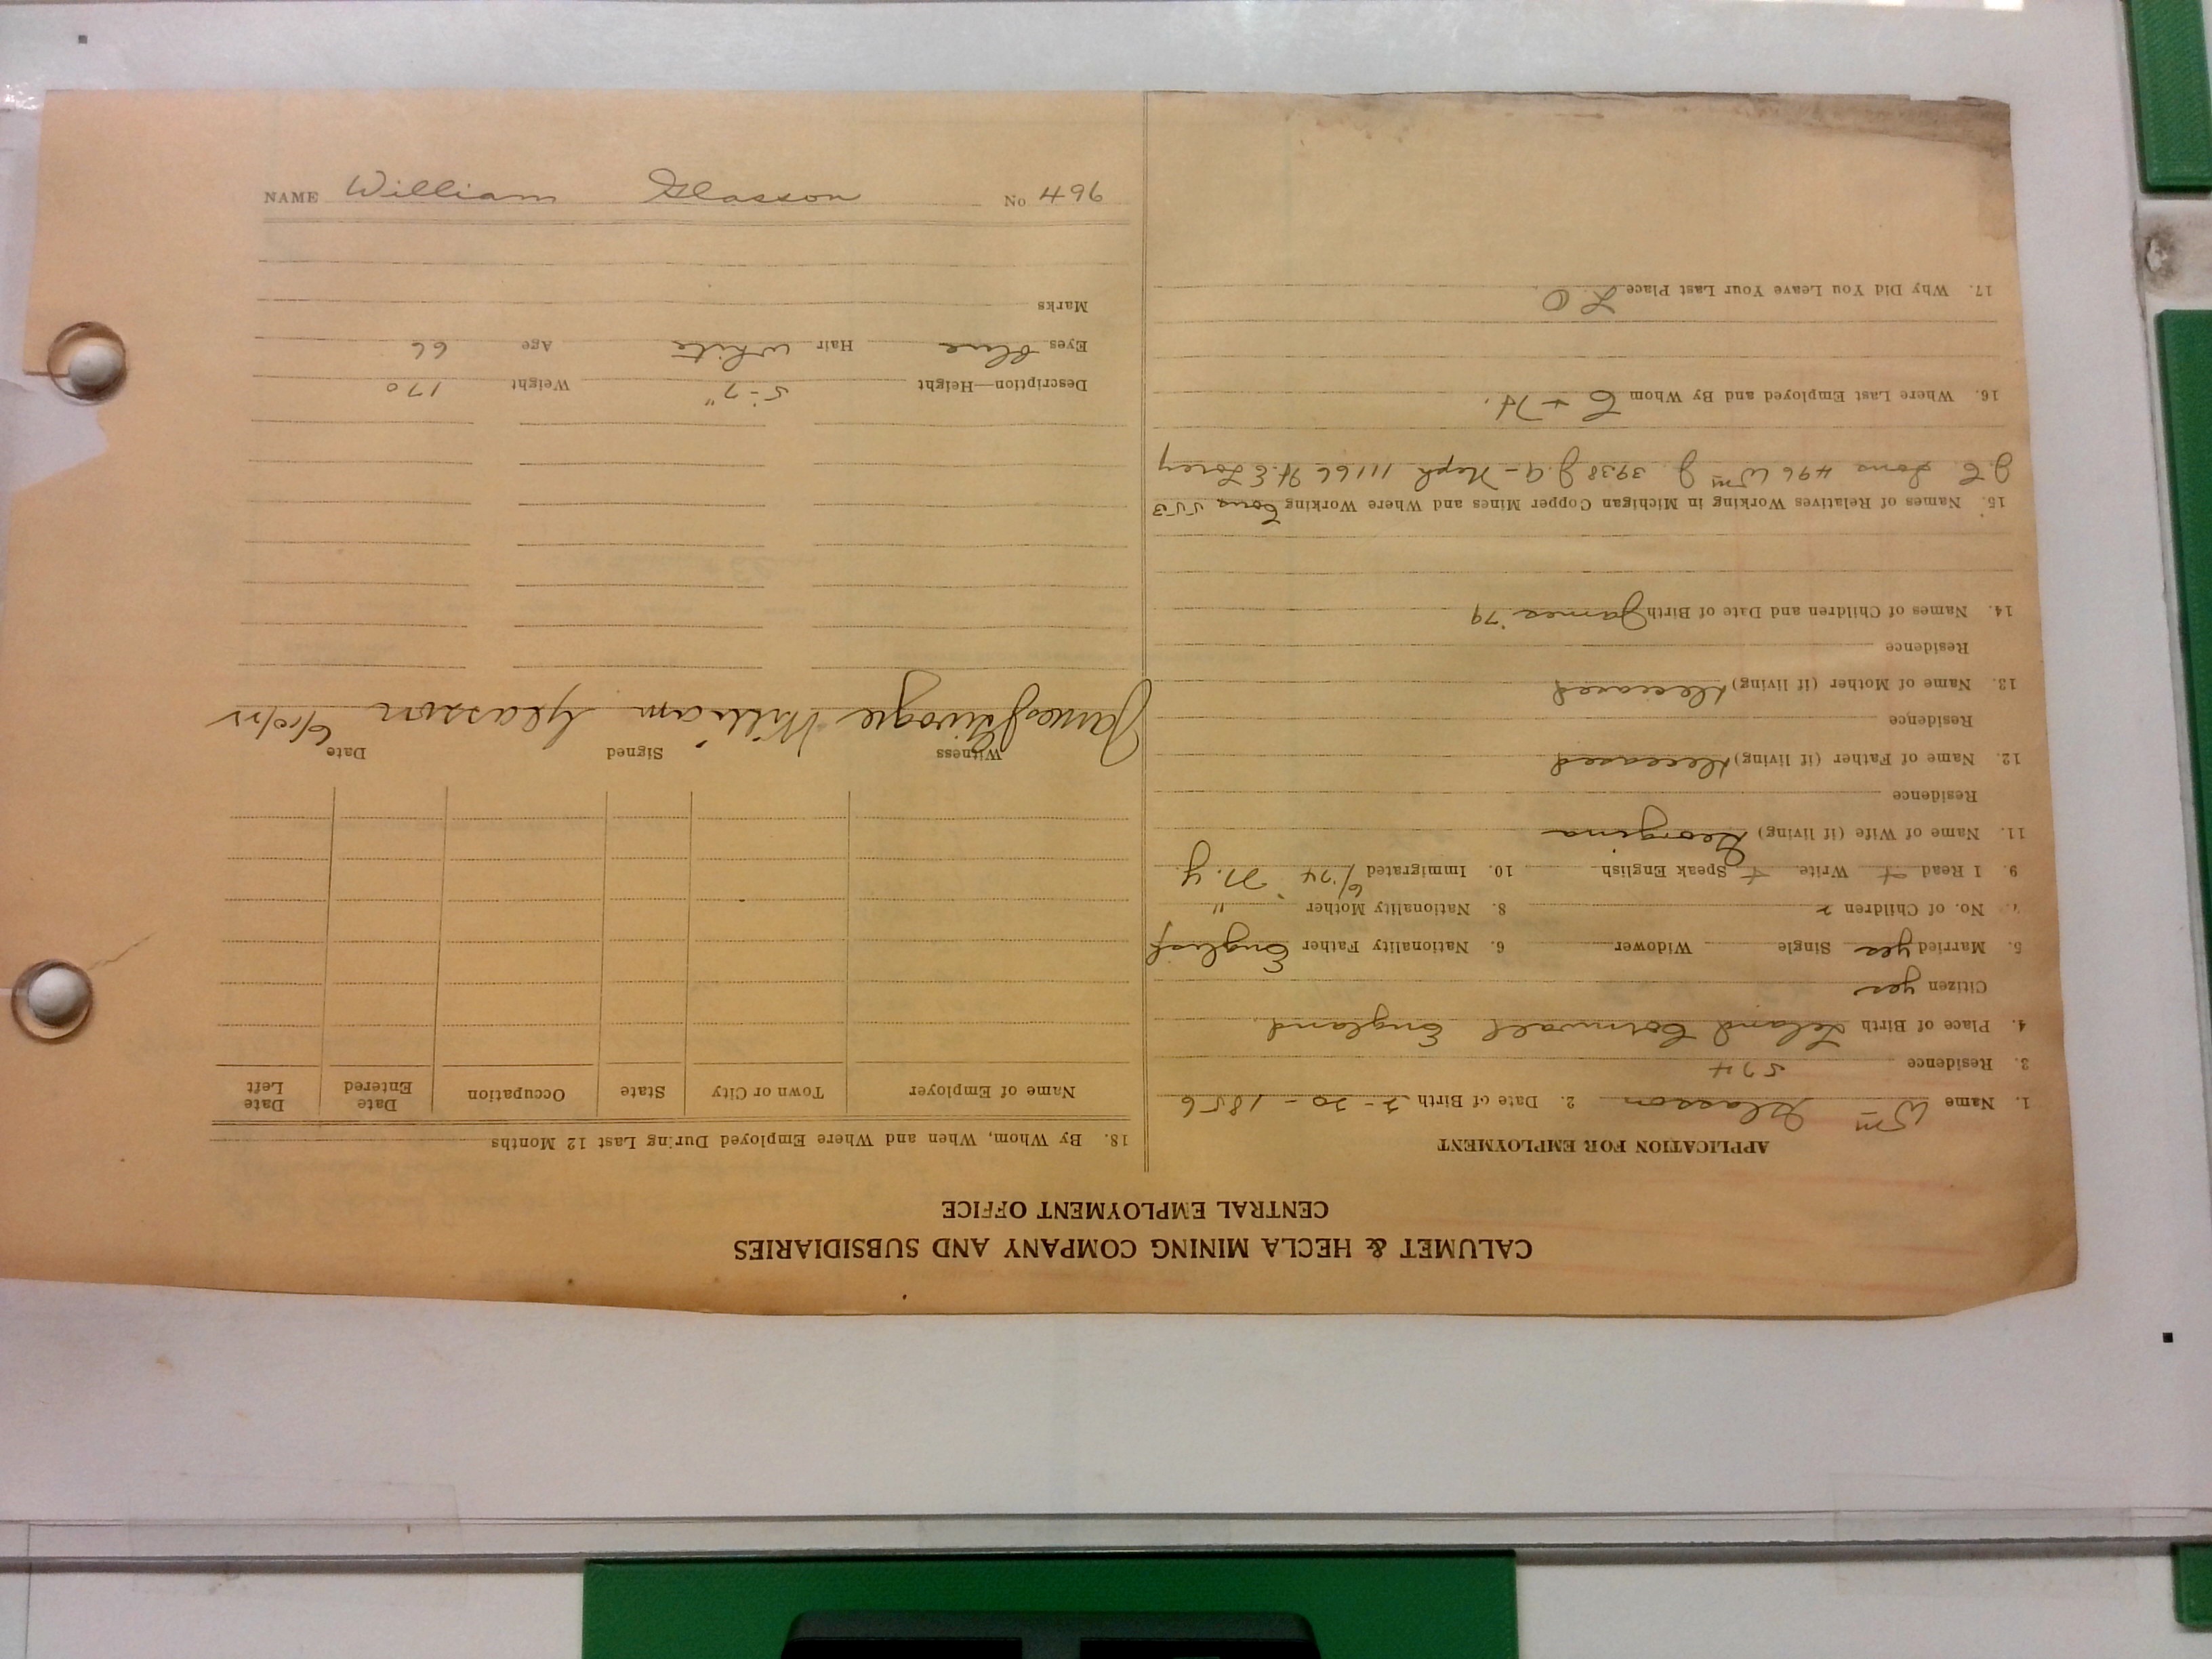 CALUMET & HECLA MINING COMPANY AND SUBSIDIARIES
CENTRAL EMPLOYMENT OFFICE
APPLICATION FOR EMPLOYMENT
1. Name Wm Glasson 2. Date of Birth 2-20-1856
3. Residence 574
4. Place of Birth Leland Cornwall England.
Citizen yes
5. Married yes Single Widower 6. Nationality Father English
7. No. of Children 2 8. Nationality Mother "
9. I Read + Write + Speak English 10. Immigrated 6/'74 N.Y.
11. Name of Wife (if living) Georgina
Residence
12. Name of Father (if living) Deceased
Residence
13. Name of Mother (if living) Deceased
Residence
14. Names of Children and Date of Birth James '79
15. Names of Relatives Working in Michigan Copper Mines and Where Working Cons 553
J.C. Sons 496 Wm J. 3938 J.A - Neph 11166 H.E
16. Where Last Employed and By Whom C + H.
17. Why Did You Leave Your Last Place LO
18. By Whom, When and Where Employed During Last 12 Months
Name of Employer Town or City State Occupation Date Entered Date Left
Witness Signed Date
James William Glasson
Description—Height 5-7" Weight 170
Eyes blue Hair white Age 66
Marks
NAME William Glasson No 496